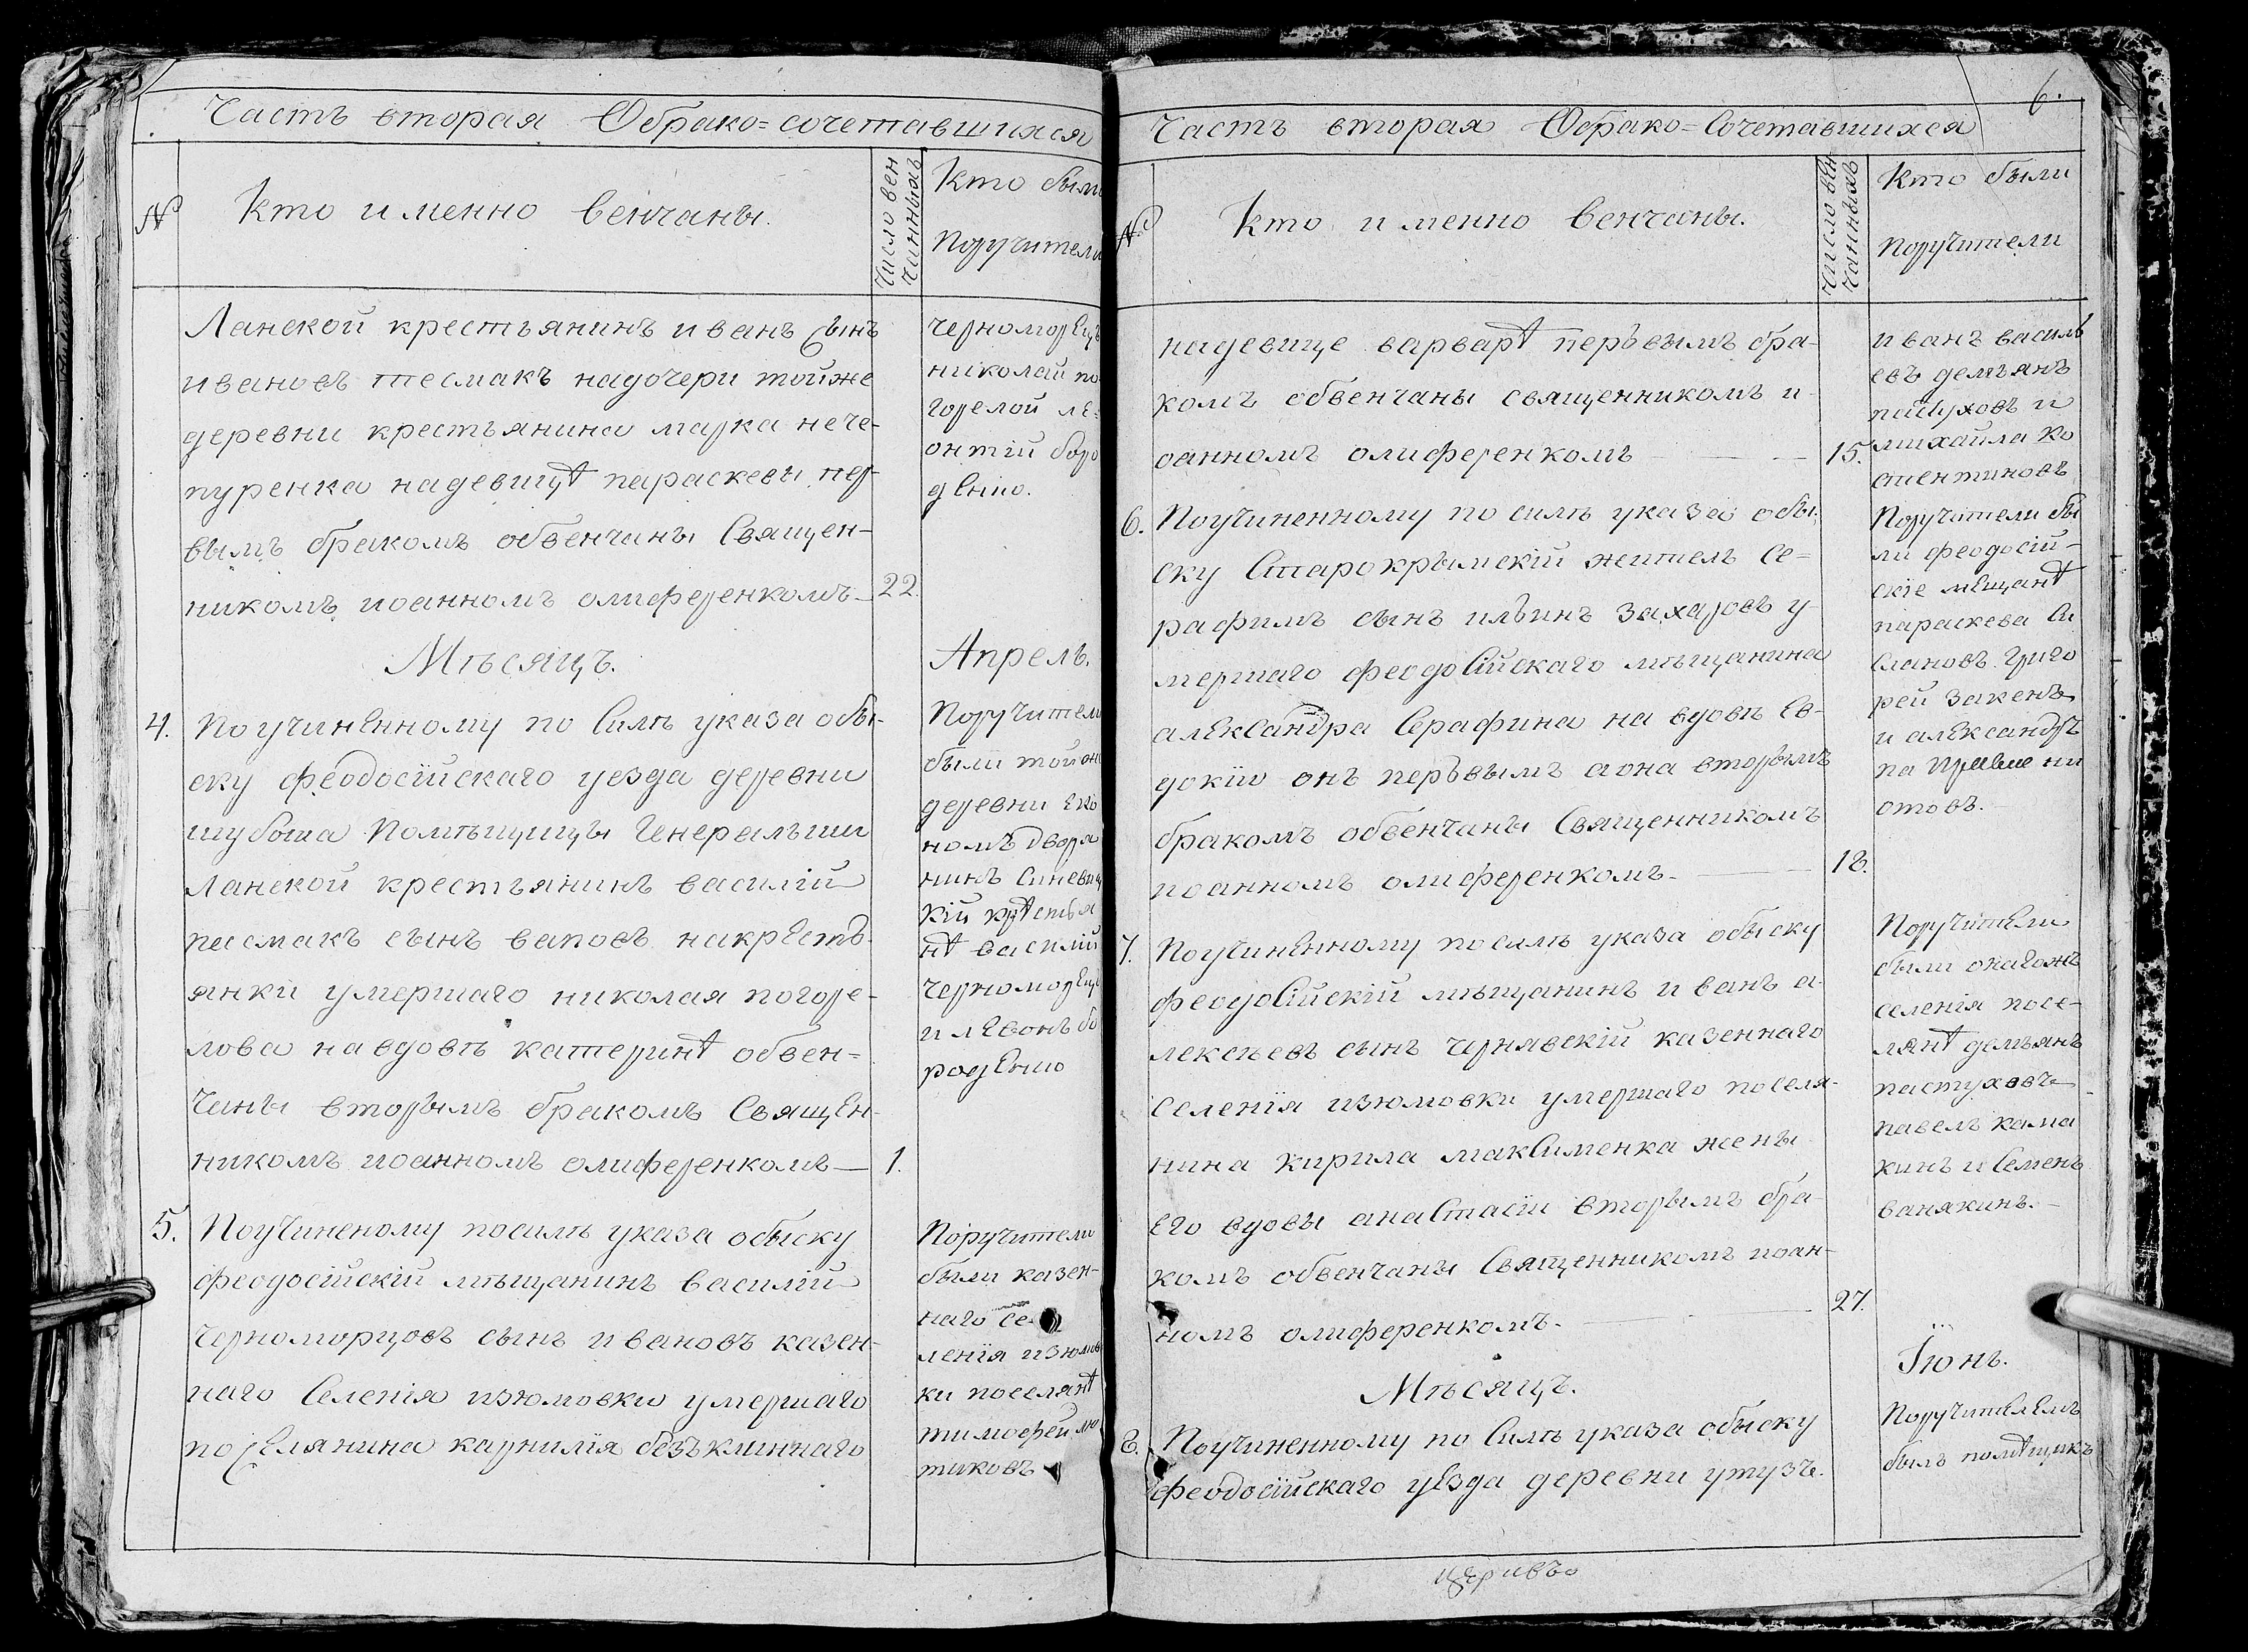 Часть вторая Обрако=сочетавшихся
№
Кто именно венчаны.
Число вен
чанныхъ
Кто были
Поручители
Ланской крестьянинъ иванъ сынъ
ивановъ тесмакъ надочери тойже
деревни крестьянина марка нече-
пуренка надевицѣ параскевы пер-
вымъ бракомъ обвенчаны Священ-
никомъ иоанномъ олиференкомъ— 22.
черноморецъ
николай по
горелой ле=
онтій боро
денко.
Мѣсяцъ. Апрель.
4. Поучиненному по Силѣ указа обы-
ску феодосійскаго уезда деревни
шубаша Помѣщицы Генеральши
Ланской крестьянинъ василій
тесмакъ сынъ вановъ накресть-
янки умершаго николая погоре-
лова навдовѣ катеринѣ обвен=
чаны вторымъ бракомъ Священ-
никомъ иоанномъ олиференкомъ— 1.
Поручители
были тойже
деревни Еко
номъ дворя
нинъ синевиц
кій крѣстья
нѣ василій
черноморецъ
и левонъ бо
роденко
5. Поучиненому посилѣ указа обыску
феодосійскій мѣщанинъ василій
черноморцовъ сынъ ивановъ казен-
наго Селенія изюмовки умершаго
поселянина карнилія безъклиннаго
Поручители
были казен-
наго се
ленія изюмов
ки поселянѣ
тимофей лю
тиковъ
6.
Часть вторая Обрако=Сочетавшихся
№
Кто именно венчаны.
Число вен
чанныхъ
Кто были
Поручители
надевице варварѣ перьвымъ бра-
комъ обвенчаны священникомъ и-
оанномъ олиференкомъ — — — 15.
иванъ василь
евъ демьянъ
пастуховъ и
михайла ко
стентиновъ
6. Поучиненному по силѣ указа обы-
ску Старокрымскій житель Се=
рафимъ сынъ ильинъ захаровъ у-
мершаго феодосійскаго мѣщанина
александра Серафина на вдовѣ Ев-
докіи онъ перьвымъ аона вторымъ
бракомъ обвенчаны Священникомъ
иоанномъ олиференкомъ. — 18.
Поручители бы
ли феодосій-
скіе мещанѣ
параскева
слановъ григо
рей закенъ
и александръ
па ни
отовъ.
7. Поучиненному посилѣ указа обыску
феодосійскій мѣщанинъ иванъ а-
лексеевъ сынъ чернявскій казеннаго
Селенія изюмовки умершаго поселя-
нина кирила максименка жены
Его вдовы анастасіи вторымъ бра-
комъ обвенчаны Священникомъ иоан-
номъ олиференкомъ. — 27.
Поручители
были онагожъ
селенія посе-
лянѣ демьянъ
пастуховъ
павелъ кама
кинъ и Семенъ
ванякинъ.—
Мѣсяцъ. Іюнь.
8. Поучиненному по Силѣ указа обыску
феодосійскаго уезда деревни утузъ.
Поручителемъ
былъ помѣщикъ